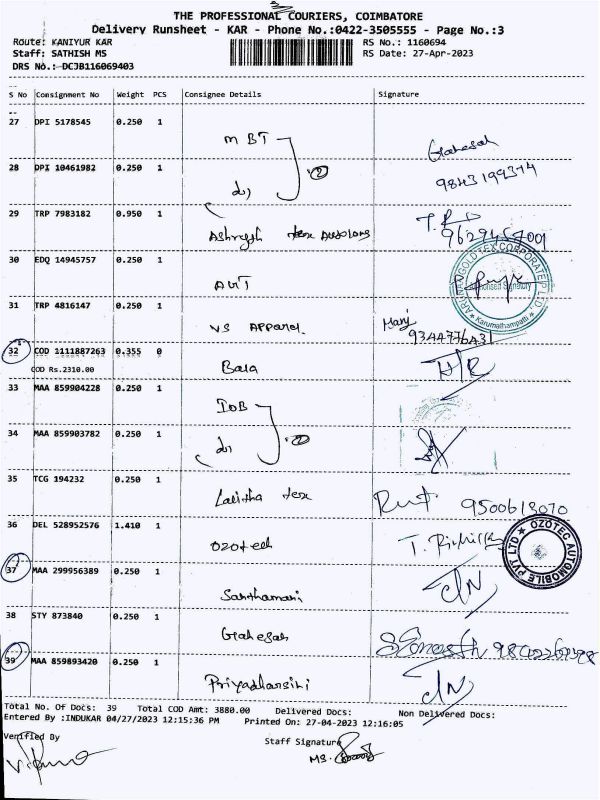 THE PROFESSIONAL COURIERS, COIMBATORE
Delivery Runsheet - KAR - Phone No.:0422-3505555 - Page No.:3
Route: KANIYUR KAR
RS No.: 1160694
Staff: SATHISH MS
RS Date: 27-Apr-2023
DRS No.: DCJB116069403
S No Consignment No Weight PCS Consignee Details Signature
27 DPI 5178545 0.250 1 MBT Gahesah
28 DPI 10461982 0.250 1 di) 2 9843199374
29 TRP 7983182 0.950 1 tex 9629457001
30 EDQ 14945757 0.250 1
ARUNAI GOLD TEX CORPORATE P LTD.
Authorised Signatory
Karumathampatti
31 TRP 4816147 0.250 1 VS Apparel Hari
9344776431
32 COD 1111887263 0.355 0 Bala
COD Rs.2310.00
33 MAA 859904228 0.250 1 IOB
34 MAA 859903782 0.250 1 di) 2
35 TCG 194232 0.250 1 Lalitha tex 9500618070
36 DEL 528952576 1.410 1 Ozotech T.
OZOTEC AUTOMOBILE PVT LTD
37 MAA 299956389 0.250 1 Santhamani
38 STY 873840 0.250 1 Gahesah
39 MAA 859893420 0.250 1 Priyadharsini
Total No. Of Docs: 39 Total COD Amt: 3880.00 Delivered Docs: Non Delivered Docs:
Entered By :INDUKAR 04/27/2023 12:15:36 PM Printed On: 27-04-2023 12:16:05
Verified By
Staff Signature
MS.